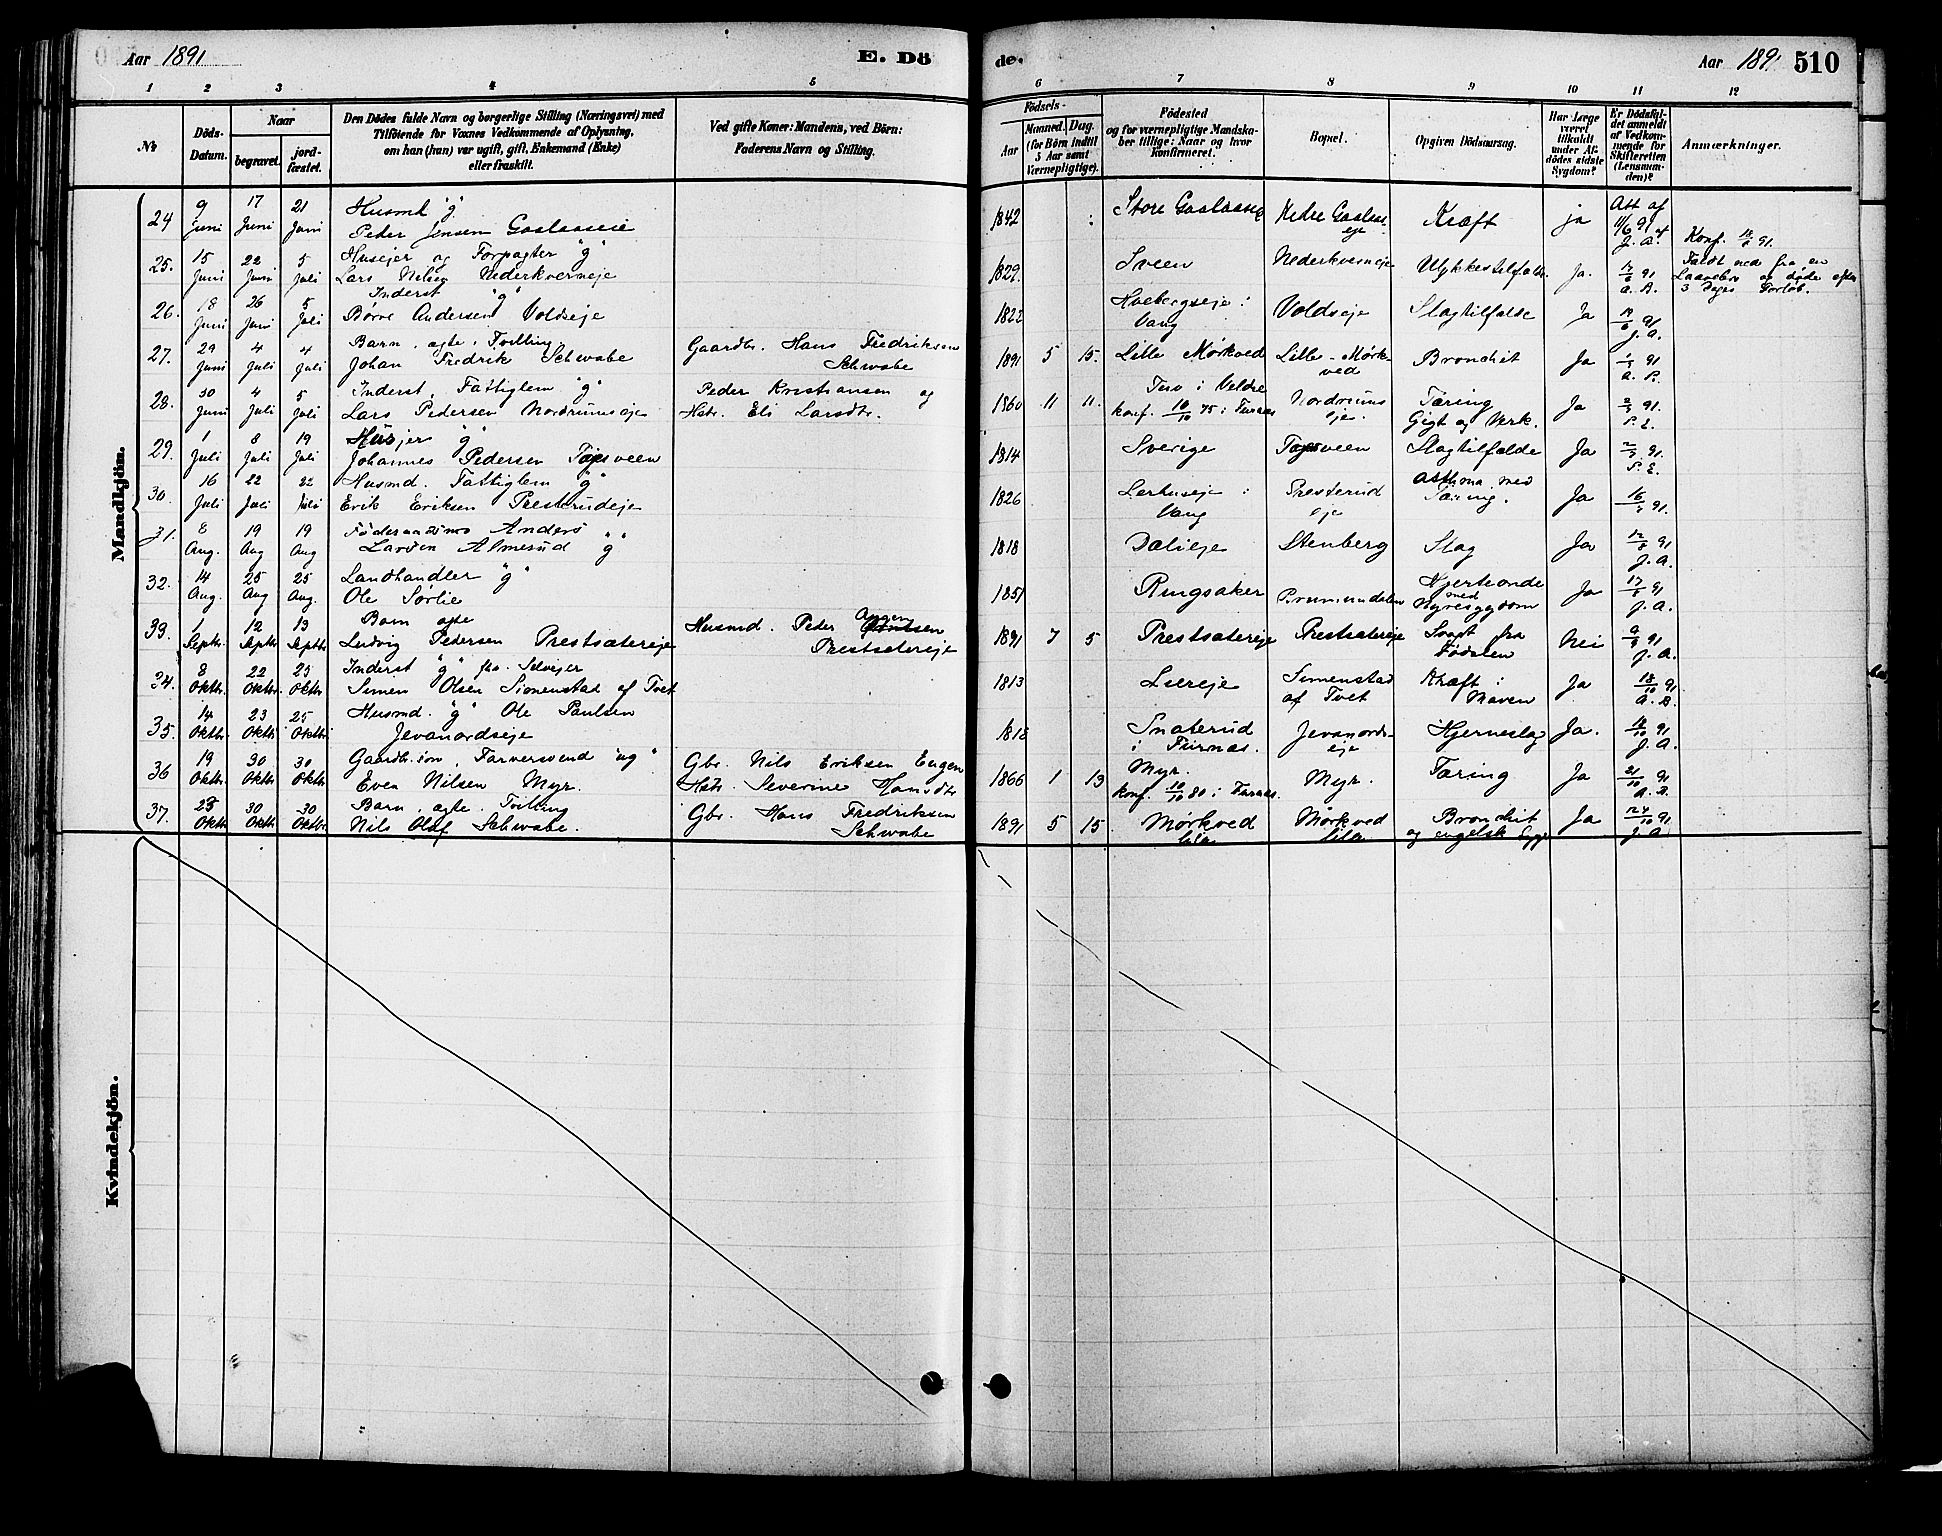 Aar 1891 E. Dö
de. Aar 1891 510
1 2 3 4 5 6 7 8 9 10 11 12
No
Döds-Datum.
Naar
begravet.
jord-fæstet.
Den Dödes fulde Navn og borgerlige Stilling (Næringsvei) med
Tilföiende for Voxnes Vedkommende af Oplysning,
om han (hun) var ugift, gift, Enkemand (Enke)
eller fraskilt.
Ved gifte Koner: Mandens, ved Börn:
Faderens Navn og Stilling.
Födsels-
Aar
Maaned. Dag.
(for Börn indtil
5 Aar samt
Værnepligtige).
Födested
og for værnepligtige Mandska-
ber tillige: Naar og hvor
konfirmeret.
Bopæl.
Opgiven Dödsaarsag.
Har Læge
været
tilkaldt
under Af-
dödes sidste
Sygdom?
Er Dödsfal-
det anmeldt
af Vedkom-
mende for
Skifteretten
(Lensman-
den)?
Anmærkninger.
Mandkjön.
24 9 Juni 17 Juni 21 Juni Husmd "g"
Peder Jensen Gaalaaseie
1842 Store Gaalaase Nedre Gaalaas-eje Kræft ja Att af 11/6 91 J. A. Konf. 91.
25. 15 Juni 22 Juni 5 Juli Husejer og Forpagter "g"
Lars Nilsen Nederkverneje
1829. Sveen Nederkverneje Ulykkestilfælde. Ja. 91 a. B. Faldt ned fra en
Laavebro og døde efter
3 Dages Forløb.
26. 18 Juni 26 Juni 5 Juli Inderst "g"
Børre Andersen Voldseje
1822 Hvebergseje i Vang Voldseje Slagtilfælde Ja 91 J. A.
27. 29 Juni 4 Juli 4 Juli Barn, ægte, Tvilling
Johan Fredrik Schwabe
Gaardbr. Hans Fredriksen
Schwabe
1891 5 15. Lille Mørkved Lille-Mørkved Bronchit Ja 91
28. 30 Juni 4 Juli 5 Juli Inderst, Fattiglem "g"
Lars Pedersen Nordrumseje
Peder Kristiansen og
Hstr. Eli Larsdtr.
1860 11 11. i Veldre
konf. 10/10 75 i Furnæs Nordrumseje. Tæring
Gigt og Verk. Ja 91.
29. 1 Juli 8 Juli 19 Juli Husejer "g"
Johannes Pedersen Topsveen
1814 Sverige Topsveen Slagtilfælde Ja 91.
30. 16 Juli 22 Juli 22 Juli Husmd. Fattiglem "g"
Erik Eriksen Presterudeje
1826 Lerhuseje i Vang Presterud eje Asthma med
Tæring. Ja 16 91.
31. 8 Aug. 19 Aug 19 Aug Föderaadsmd Anders
Larsen Almerud "g"
1818 Dælieje Stenberg Slag Ja 91 J. A.
32. 14 Aug. 25 Aug 25 Aug. Landhandler "g"
Ole Sørlie
1851 Ringsaker Brumunddalen Hjerteonde
med
Nyresygdom Ja 91 J. A.
33. 1 Septbr. 12 Septbr 13 Septbr Barn ægte
Ludvig Pedersen Prestsætereje
Husmd. Peder
Prestsætereje
1891 7 5 Prestsætereje Prestsætereje Svagt fra
Fødselen Nei 91 J. A.
34. 8 Oktbr. 22 Oktbr. 25 Oktbr. Inderst "g" fh. Selvejer
Simen Olsen Simenstad af Tvet
1813 Liereje Simenstad
af Tvet Kræft i
Maven Ja 91 A. B.
35. 14 Oktbr. 23 Oktbr. 25 Oktbr. Husmd. "g" Ole Paulsen
Jevanordseje
1818 Snaterud
i Furnæs. Jevanordseje Hjerneslag Ja. 91 J. A.
36 19 Oktbr. 30 Oktbr. 30 Oktbr. Gaardbr.søn, Farversvend "ug"
Even Nilsen Myr.
Gbr. Nils Eriksen Engen
Hstr. Severine Hansdtr
1866 1 13 Myr.
konf. 10/10 80 i Furnæs. Myr. Tæring Ja 21/10 91 A. B.
37. 23 Oktbr 30 Oktbr. 30 Oktbr. Barn, ægte. Tvilling
Nils Olaf Schwabe.
Gbr. Hans Fredriksen
Schwabe
1891 5 15 Mørkved
lille Mørkved
lille Bronchit
og engelsk Syge Ja 24/10 91. J. A.
Kvindekjön.